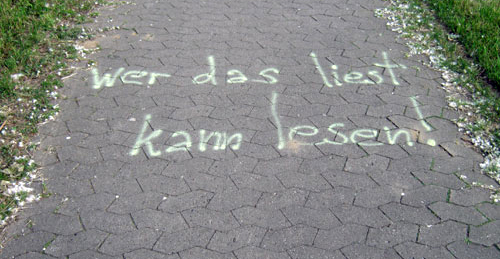 wer das liest
kann lesen!